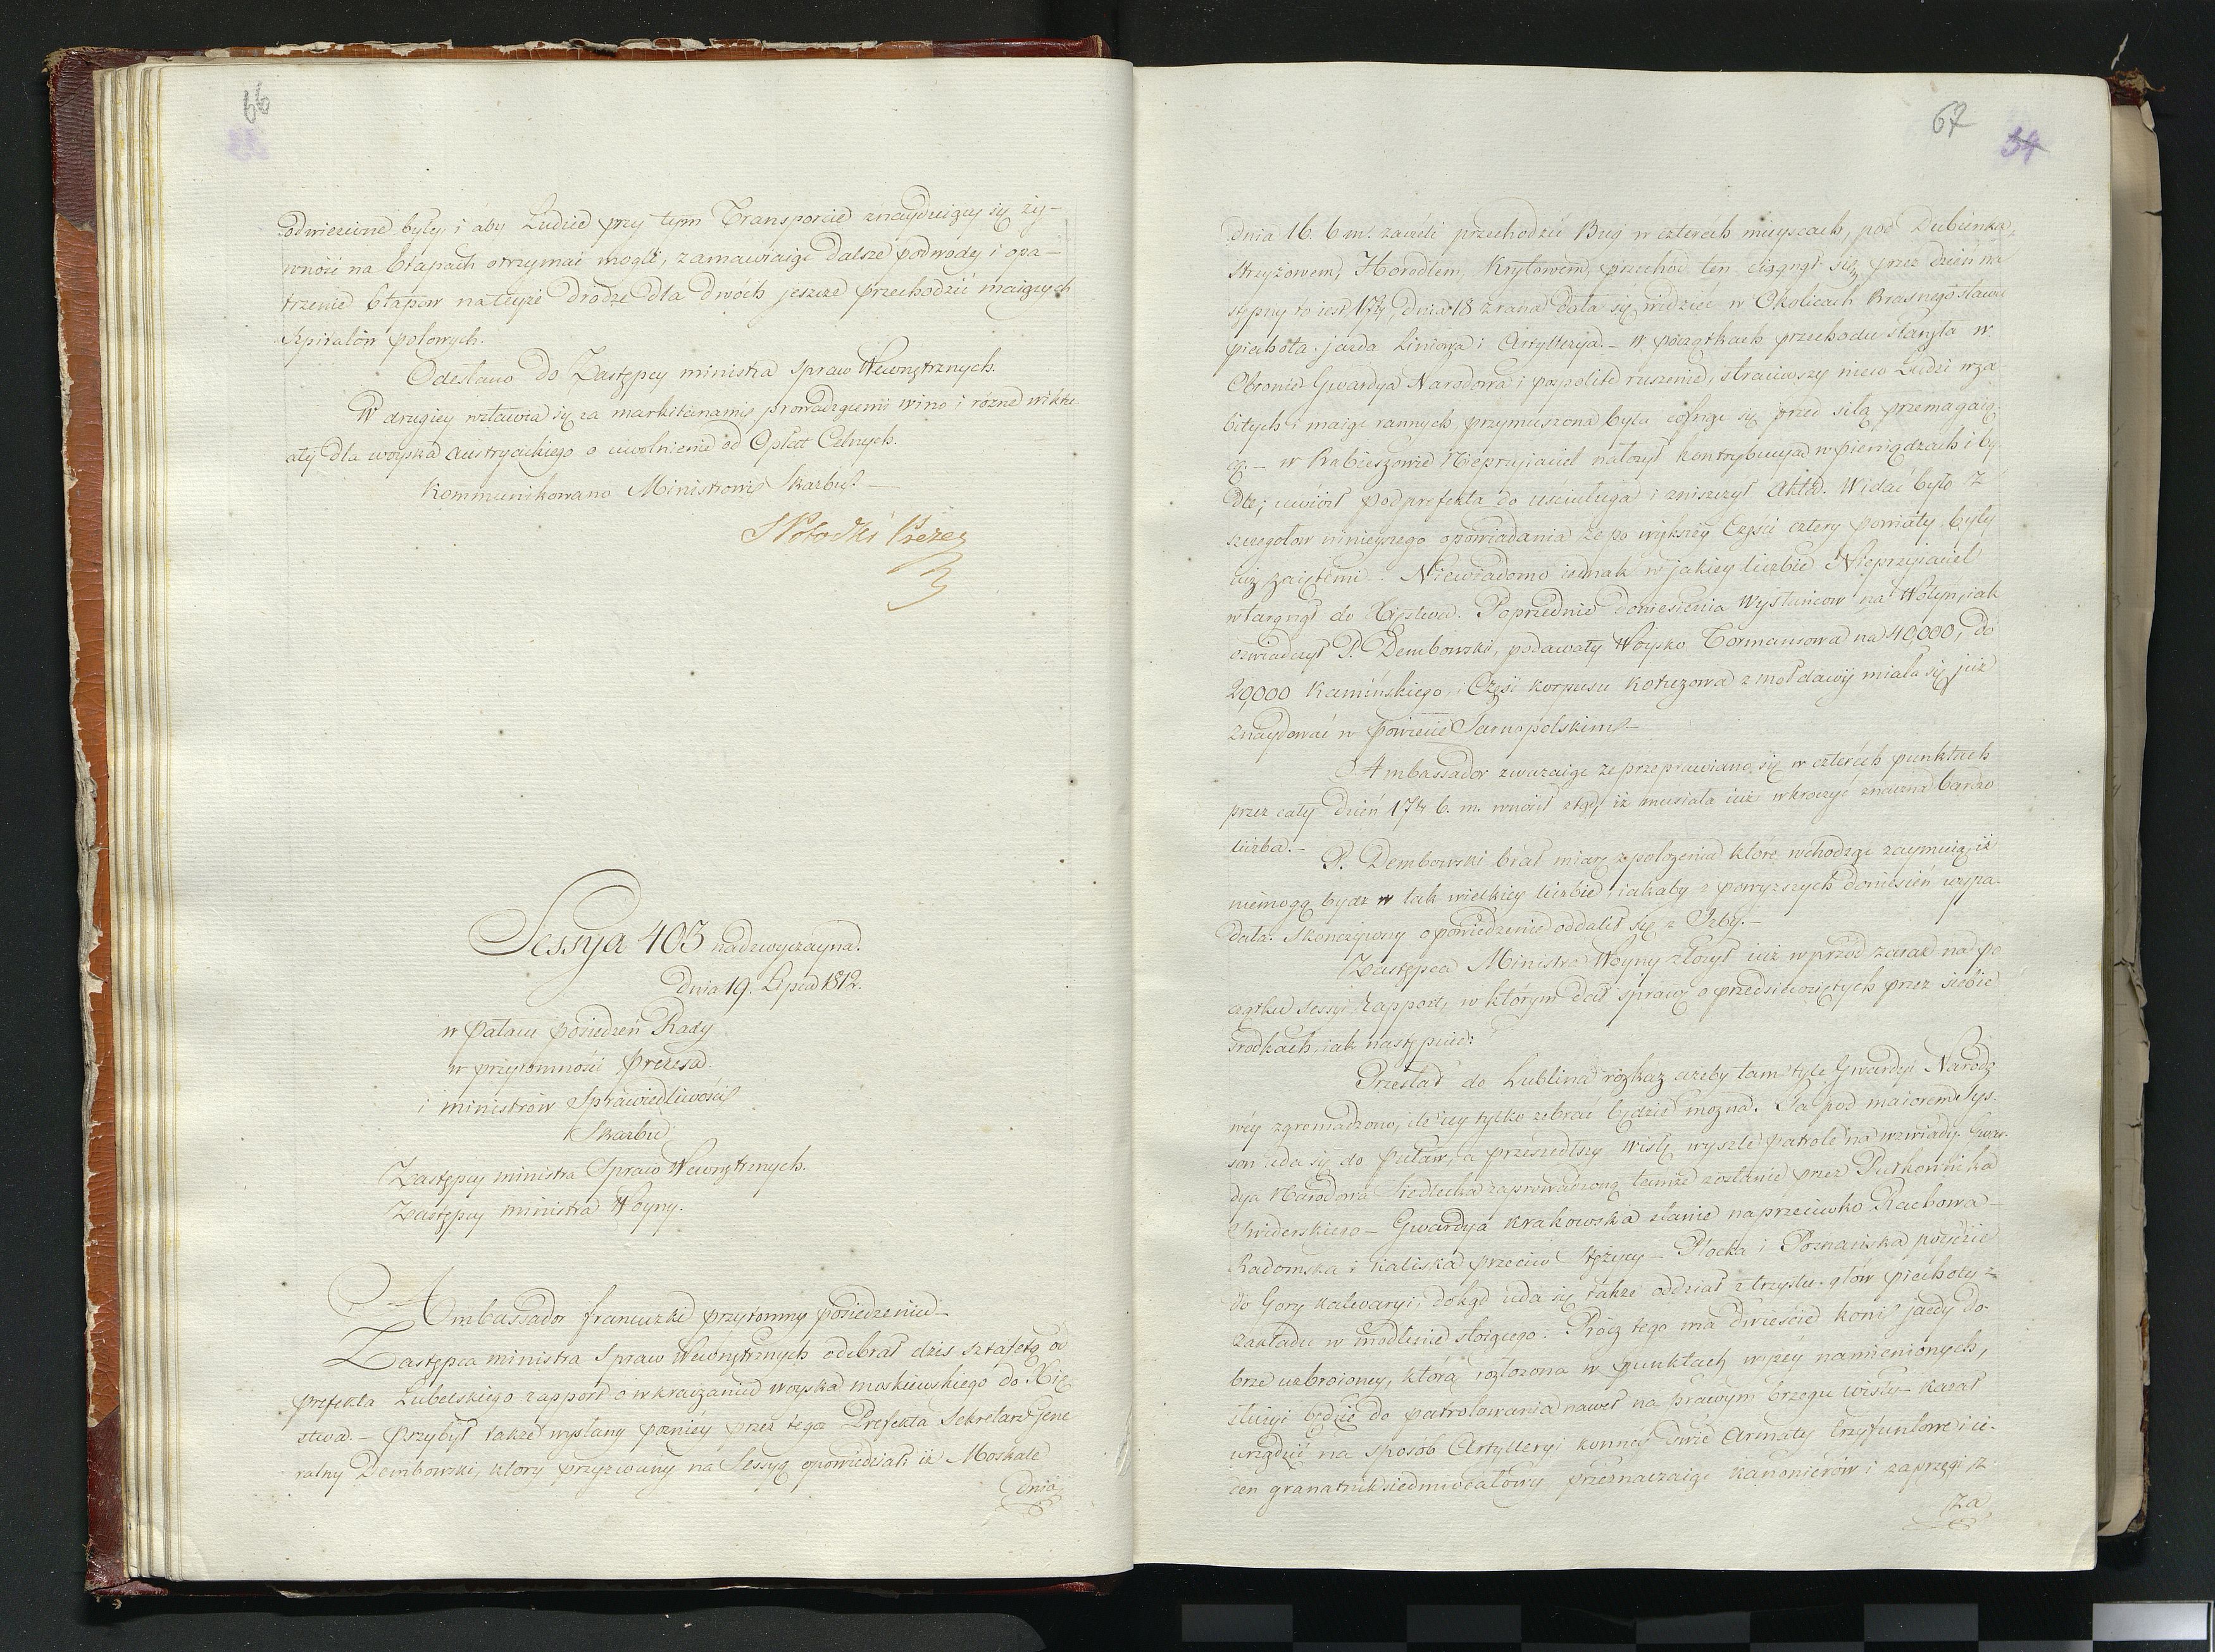 66
odwiezione były, i aby Ludzie przy tym Transporcie znayduiący się ży-
wność na Etapach otrzymać mogli, zamawiaiąc dalsze podwody i opa-
trzenie Etapów na teyże drodze dla dwóch jeszcze przechodzić maiących
Szpitalów polowych.
Odesłano do Zastępcy ministra Spraw Wewnętrznych.
W drugiey wstawia się za markietanami prowadzącemi wino i różne wiktu-
ały dla woyska Austryackiego o uwolnienie od Opłat Celnych.
Kommunikowano Ministrowi Skarbu. —
S Potocki Prezes
Sessya 403 nadzwyczayna.
Dnia 19. Lipca 1812.
w Pałacu posiedzeń Rady
w przytomności Prezesa
i ministrów Sprawiedliwości
Skarbu
Zastępcy ministra Spraw Wewnętrznych.
Zastępcy ministra Woyny.
Ambassador francuzki przytomny posiedzeniu —
Zastępca ministra Spraw Wewnętrznych odebrał dziś sztafetą od
prefekta Lubelskiego rapport o wkraczaniu woyska moskiewskiego do Xię
stwa. — Przybył także wysłany poźniey przez tegoż Prefekta Sekretarz Gene
ralny Dembowski, który przyzwany na Sessyą opowiedział: iż Moskale
Dnia
67
34
Dnia 16. b. m. zaczeli przechodzić Bug w czterech mieyscach, pod Dubienką,
Stryżowem, Horodłem, Kryłowem, przechod ten ciągnął się przez dzień na
stępny to iest 17ty, dnia 18 z rana dała się widzieć w Okolicach Krasnegostawu
piechota, jazda Liniowa i Artyllerya. — W początkach przechodu stanęła w
Obronie Gwardya Narodowa i pospolite ruszenie, straciwszy nieco Ludzi w za-
bitych i maiąc rannych, przymuszona była cofnąć się przed siłą przemagaią-
cą. — w Hrubieszowie Nieprzyiaciel nałożył kontrybucyą w pieniądzach i by-
dle; uwiózł podprefekta do uściługa i zniszczył Akta. Widać było z
szczegołów ninieyszego opowiadania że po większey Części cztery powiaty były
iuż zaiętemi. — Niewiadomo iednak w jakiey liczbie Nieprzyiaciel
wtargnął do Xięstwa. Poprzednie doniesienia Wysłańcow na Wołyn, iak
oświadczył P. Dembowski, podawały Woysko Tormansowa na 40,000, do
20,000 Kamińskiego, i Część korpusu Kotuzowa z mołdawij miała się już
znaydować w powiecie Tarnopolskim —
Ambassador zważaiąc że przeprawiano się w czterech punktach
przez cały dzień 17ty b. m. wnosił ztąd, iż musiała iuż wkroczyć znaczna bardzo
liczba. —
P. Dembowski brał miarę z położenia które wchodząc zaymuią, iż
niemogą bydź w tak wielkiey liczbie, iakaby z powyższych doniesień wypa-
dała. Skończywszy opowiedzenie oddalił się z Izby. —
Zastępca Ministra Woyny złożył iuż wprzód zaraz na po
czątku Sessyi Rapport, w którym dał sprawę o przedsięwziętych przez siebie
środkach, iak następuie:
Przesłał do Lublina rozkaz ażeby tam tyle Gwardyi Narodo
wey zgromadzono, ile iey tylko zebrać będzie można. Ta pod maiorem Sys-
son uda się do Puław, a przeszedłszy Wisłę wyszle patrole na wzwiady. Gwar-
dya Narodowa Siedlecka zaprowadzoną tamże zostanie przez Pułkownika
Świderskiego — Gwardya krakowska stanie naprzeciwko Rachowa —
Radomska i Kaliska przeciw Stężycy — Płocka i Poznańska poydzie
do Gory Kalwaryi, dokąd uda się także oddział z trzystu głów piechoty z
zakładu w Modlinie stoiącego. Prócz tego ma dwieście koni jazdy do-
brze uzbroioney, która rozłożona w punktach wyżey namienionych,
służyć będzie do patrolowania nawet na prawym brzegu Wisły — kazał
urządzić na sposób Artylleryi konney dwie Armaty trzyfuntowe i ie-
den granatnik siedmiocalowy przeznaczaiąc kanonierów i zaprzęgi z
Za